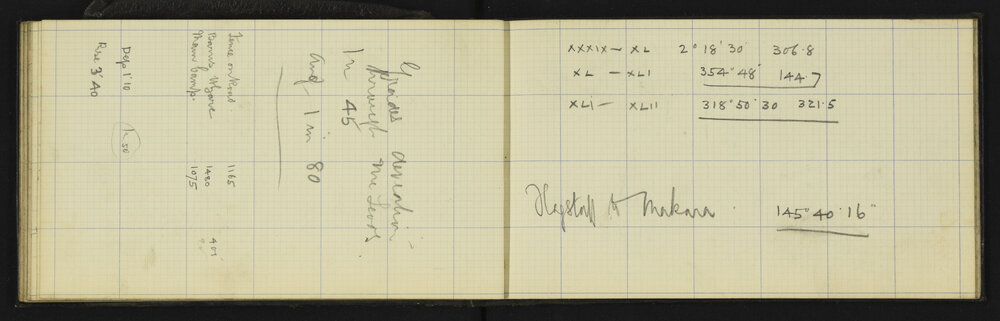 Grades deviation
through the Levels.
1 in 45
and 1 in 80
Fence on Road. 1165
1420 401
Main Camp. 1075
1 in 50
Dep 1°10
Rise 3°40
XXXIX — XL 2° 18' 30" 306.8
XL — XLI 354° 48' 144.7
XLI — XLII 318° 50' 30 321.5
Flagstaff to Makara. 145° 40' 16"